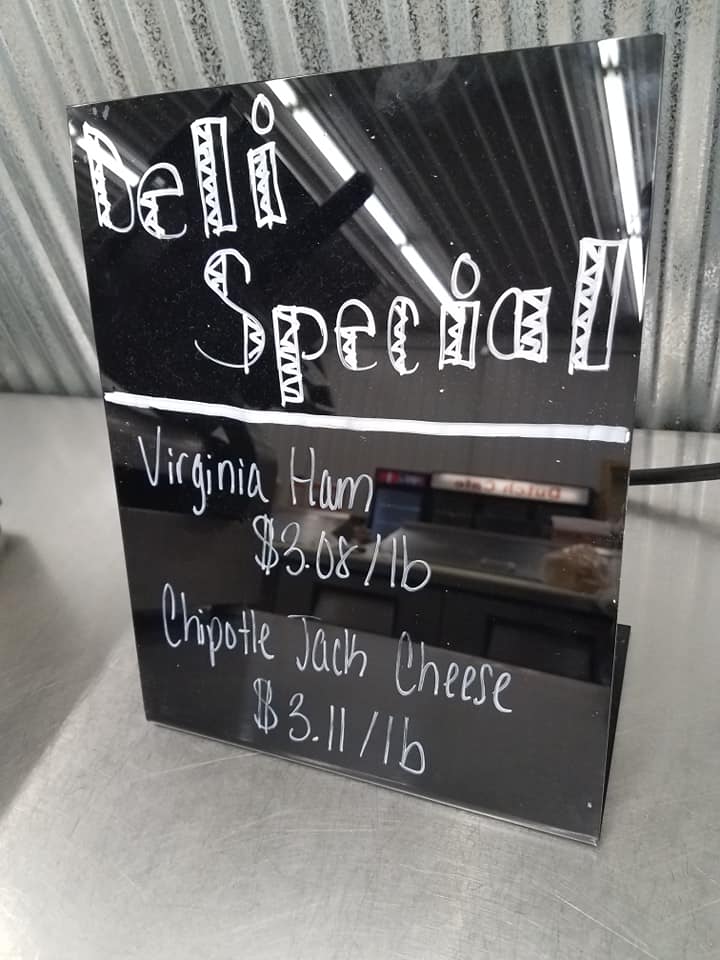 Deli
Special
Virginia Ham
$3.08/lb
Chipotle Jack Cheese
$3.11/lb
Dutch Cafe